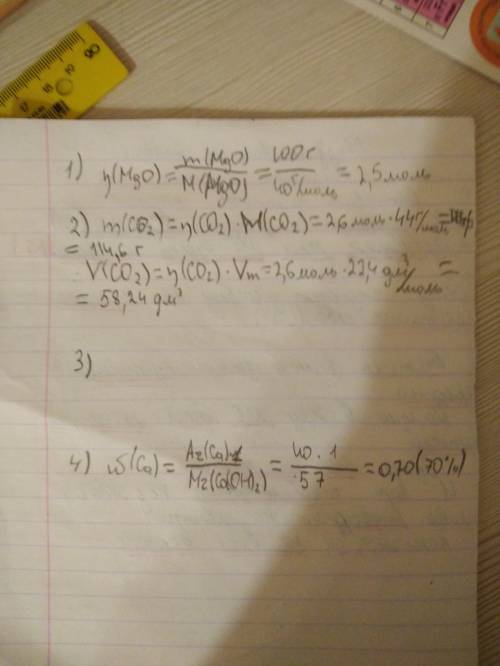 1) η(MgO) = m(MgO)/M(MgO) = 100г/40г/моль = 2,5 моль
2) m(CO2) = η(CO2) · M(CO2) = 2,6 моль · 44г/моль =
= 114,6 г
V(CO2) = η(CO2) · Vm = 2,6 моль · 22,4 дм³/моль =
= 58,24 дм³
3)
4) ω(Ca) = Ar(Ca)·1/Mr(Ca(OH)2) = 40·1/57 = 0,70 (70%)